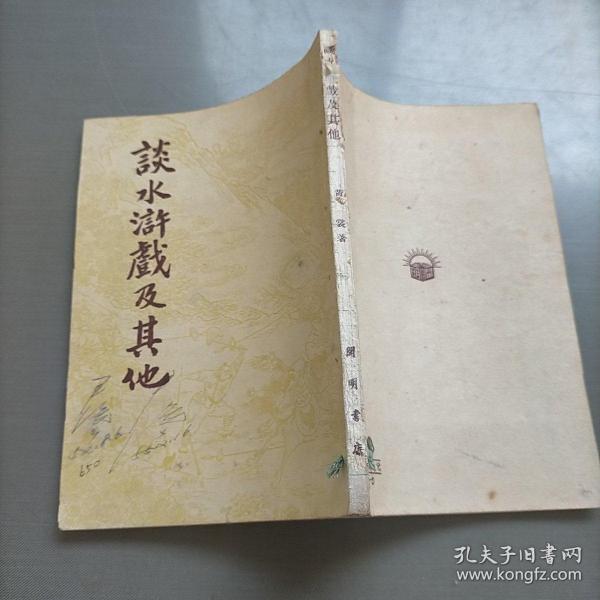 談水滸戲及其他
戲及其他
黃裳著
開明書店
650
孔夫子旧书网
www.kongfz.com